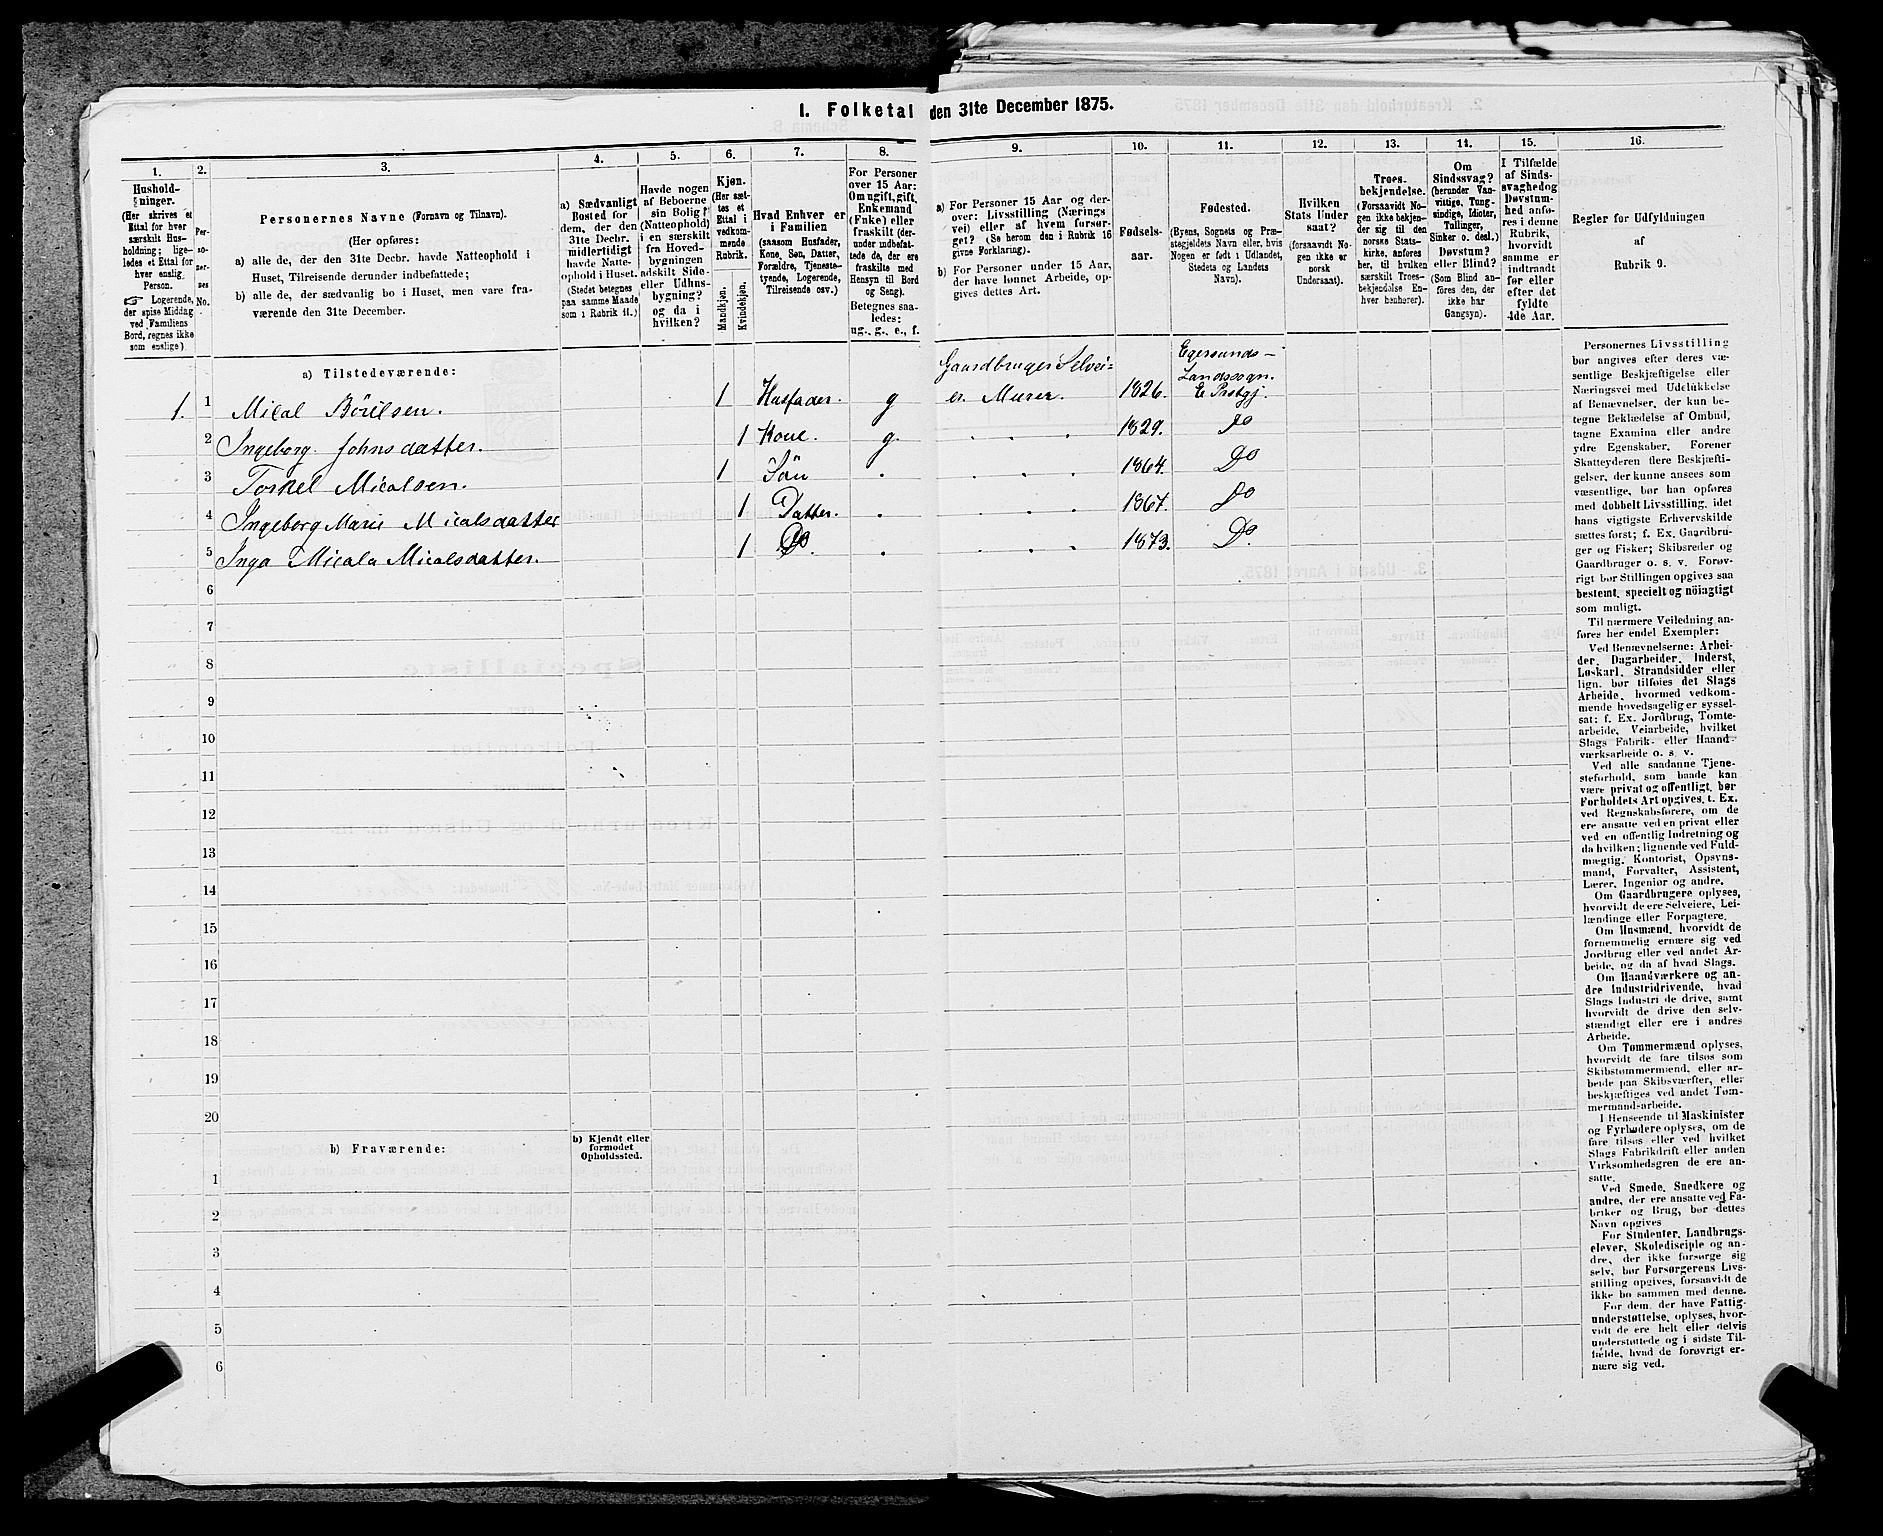 1. Folketal den 31te December 1875.
1.
Hushold-
ninger.
(Her skrives et
Ettal for hver
særskilt Hus-
holdning; lige-
ledes et Ettal for
hver enslig
Person.
☞ Logerende,
der spise Middag
ved Familiens
Bord, regnes ikke
som enslige).
2.
Per-
so-
ner-
nes
No.
3.
Personernes Navne (Fornavn og Tilnavn).
(Her opføres:
a) alle de, der den 31te Decbr. havde Natteophold i
Huset, Tilreisende derunder indbefattede;
b) alle de, der sædvanlig bo i Huset, men vare fra-
værende den 31te December.
4.
a) Sædvanligt
Bosted for
dem, der den
31te Decbr.
midlertidigt
havde Natte-
ophold i Huset.
(Stedet betegnes
paa samme Maade
som i Rubrik 11.)
5.
Havde nogen
af Beboerne
sin Bolig
(Natteophold)
i en særskilt
fra Hoved-
bygningen
adskilt Side-
eller Udhus-
bygning?
og da i
hvilken?
6.
Kjøn.
(Her sæt-
tes et
Ettal i
vedkom-
mende
Rubrik.
Mandkjøn.
Kvindekjøn.
7.
Hvad Enhver er
i Familien
(saasom Husfader,
Kone, Søn, Datter,
Forældre, Tjeneste-
tyende, Logerende,
Tilreisende osv.)
8.
For Personer
over 15 Aar:
Om ugift, gift,
Enkemand
(Enke) eller
fraskilt (der-
under indbefat-
tede de, der ere
fraskilte med
Hensyn til Bord
og Seng).
Betegnes saa-
ledes:
ug., g., e., f.
9.
a) For Personer 15 Aar og der-
over: Livsstilling (Nærings
vei) eller af hvem forsør-
get? (Se herom den i Rubrik 16
givne Forklaring).
b) For Personer under 15 Aar,
der have lønnet Arbeide, op-
gives dettes Art.
10.
Fødsels-
aar.
11.
Fødested.
(Byens, Sognets og Præ-
stegjeldets Navn eller, hvis
Nogen er født i Udlandet,
Stedets og Landets
Navn).
12.
Hvilken
Stats Under
saat?
(forsaavidt No-
gen ikke er
norsk
Undersaat).
13.
Troes.
bekjendelse.
(Forsaavidt No-
gen ikke bekjen-
der sig til den
norske Stats-
kirke, anføres
her, til hvilken
særskilt Troes-
bekjendelse En-
hver henhører).
14.
Om
Sindssvag?
(herunder Van-
vittige, Tung-
sindige, Idioter,
Tullinger,
Sinker o. desl.)
Døvstum?
eller Blind?
(Som Blind an-
føres den, der
ikke har
Gangsyn).
15.
I Tilfælde
af Sinds-
svaghed og
Døvstum-
hed anfø-
res i denne
Rubrik,
hvorvidt
samme er
indtraadt
før eller
efter det
fyldte
4de Aar.
16.
Regler for Udfyldningen
af
Rubrik 9.
a) Tilstedeværende:
Gaardbruger Selvei- Egersunds-
Landssogn.
1. 1 Mical Börilsen. 1 Husfader. g er. Murer. 1826. E Prstgj.
2 Ingeborg Johnsdatter. 1 Kone. g. . . . 1829. Do
3 Torkel Micalsen. 1 Sön . . . . 1864. Do
4 Ingeborg Marie Micalsdatter 1 Datter. . . . . 1867. Do
5 Inga Micala Micalsdatter. 1 Do. . . . . 1873. Do.
6
7
8
9
10
11
12
13
14
15
16
17
18
19
20
b) Fraværende:
b) Kjendt eller
formodet
Opholdssted.
1
2
3
4
5
6
Personernes Livsstilling
bør angives efter deres væ-
sentlige Beskjæftigelse eller
Næringsvei med Udelukkelse
af Benævnelser, der kun be-
tegne Beklædelse af Ombud,
tagne Examina eller andre
ydre Egenskaber. Forener
Skatteyderen flere Beskjæfti-
gelser, der kunne ansees som
væsentlige, bør han opføres
med dobbelt Livsstilling, idet
hans vigtigste Erhvervskilde
sættes først; f. Ex. Gaardbru-
ger og Fisker; Skibsreder og
Gaardbruger o. s. v. Forøv-
rigt bør Stillingen opgives saa
bestemt, specielt og nöiagtigt
som muligt.
Til nærmere Veiledning an-
føres her endel Exempler:
Ved Benævnelserne: Arbei-
der, Dagarbeider, Inderst,
Løskarl, Strandsidder eller
lign. bør tilføies det Slags
Arbeide, hvormed vedkom-
mende hovedsagelig er syssel-
sat: f. Ex. Jordbrug, Tomte-
arbeide, Veiarbeide, hvilket
Slags Fabrik- eller Haand-
værksarbeide o. s. v.
Ved alle saadanne Tjene-
steforhold, som baade kan
være privat og offentligt, bør
Forholdets Art opgives, t. Ex.
ved Regnskabsførere, om de
ere ansatte ved en privat eller
ved en offentlig Indretning og
da hvilken; lignende ved Fuld-
mægtig, Kontorist, Opsyns-
mand, Forvalter, Assistent,
Lærer, Ingeniør og andre.
Om Gaardbrugere oplyses,
hvorvidt de ere Selveiere, Lei-
lændinge eller Forpagtere.
Om Husmænd, hvorvidt de
fornemmelig ernære sig ved
Jordbrug eller ved andet Ar-
beide, og da af hvad Slags.
Om Haandværkere og an-
dre Industridrivende, hvad
Slags Industri de drive, samt
hvorvidt de drive den selv-
stændigt eller ere i andres
Arbeide.
Om Tømmermænd oplyses,
hvorvidt de fare tilsøs som
Skibstømmermænd, eller ar-
beide paa Skibsværfter, eller
beskjæftiges ved andet Tøm-
mermand-arbeide.
I Henseende til Maskinister
og Fyrbødere oplyses, om de
fare tilsøs eller ved hvilket
Slags Fabrikdrift eller anden
Virksomhedsgren de ere an-
satte.
Ved Smede, Snedkere og
andre, der ere ansatte ved Fa-
briker og Brug, bør dettes
Navn opgives
For Studenter, Landbrugs-
elever, Skoledisciple og an-
dre, der ikke forsørge sig
selv, bør Forsørgerens Livs-
stilling opgives, forsaavidt de
ikke bo sammen med denne.
For dem, der have Fattig-
understøttelse, oplyses, hvor-
vidt de ere helt eller delvis
understøttede og i sidste Til-
fælde, hvad de forøvrigt er-
nære sig ved.